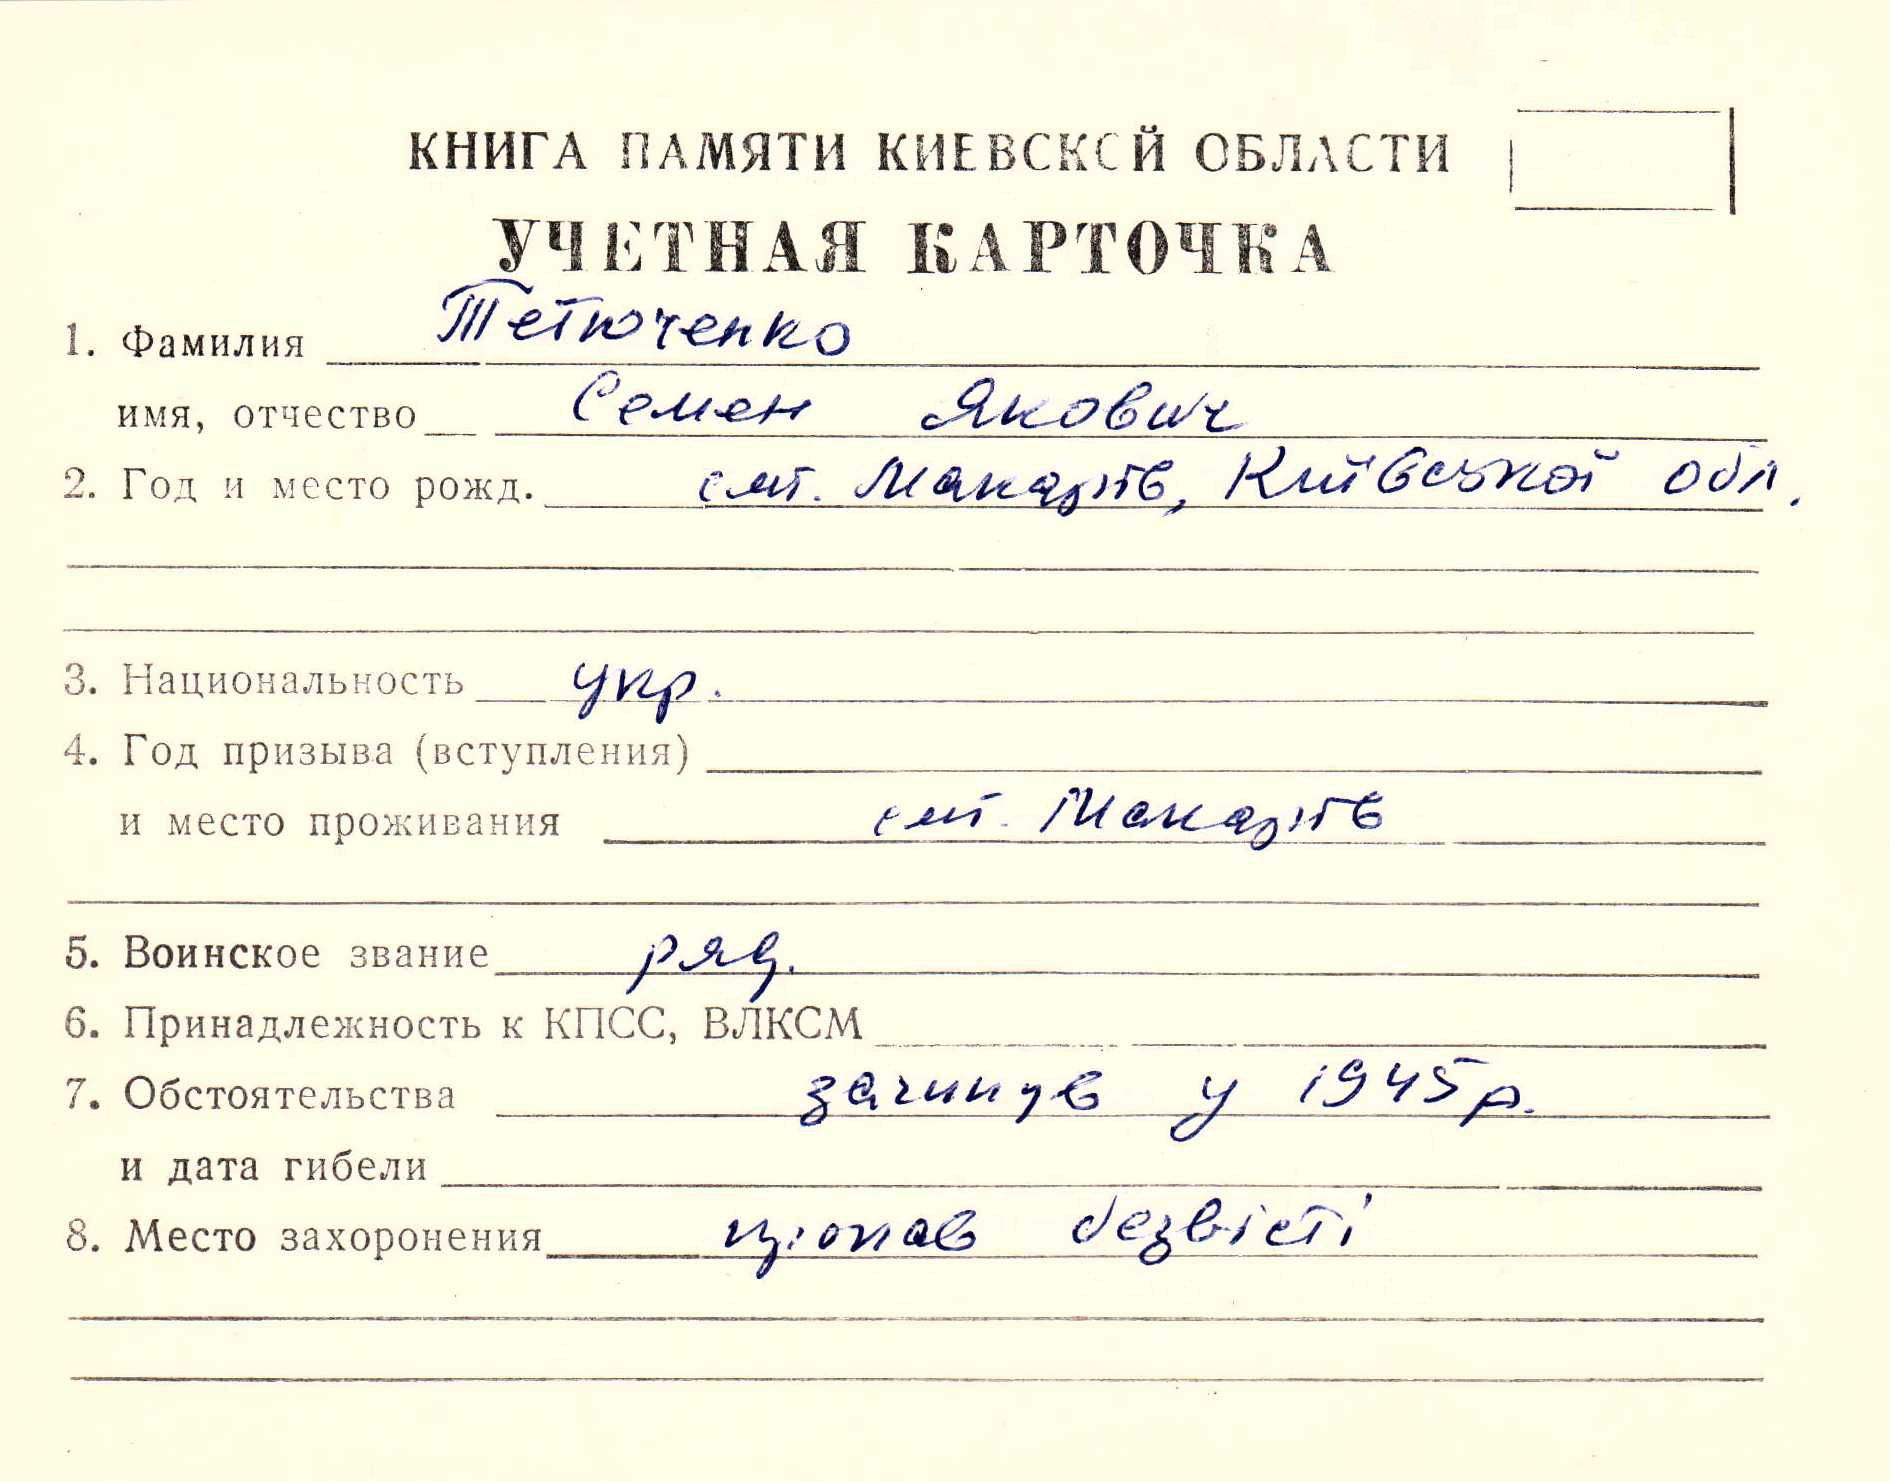 КНИГА ПАМЯТИ КИЕВСКОЙ ОБЛАСТИ
УЧЕТНАЯ КАРТОЧКА
1. Фамилия Тетюченко
имя, отчество Семен Якович
2. Год и место рожд. смт. Макарів, Київської обл.
3. Национальность укр.
4. Год призыва (вступления)
и место проживания смт. Макарів
5. Воинское звание ряд.
6. Принадлежность к КПСС, ВЛКСМ
7. Обстоятельства загинув у 1945 р.
и дата гибели
8. Место захоронения пропав безвісті